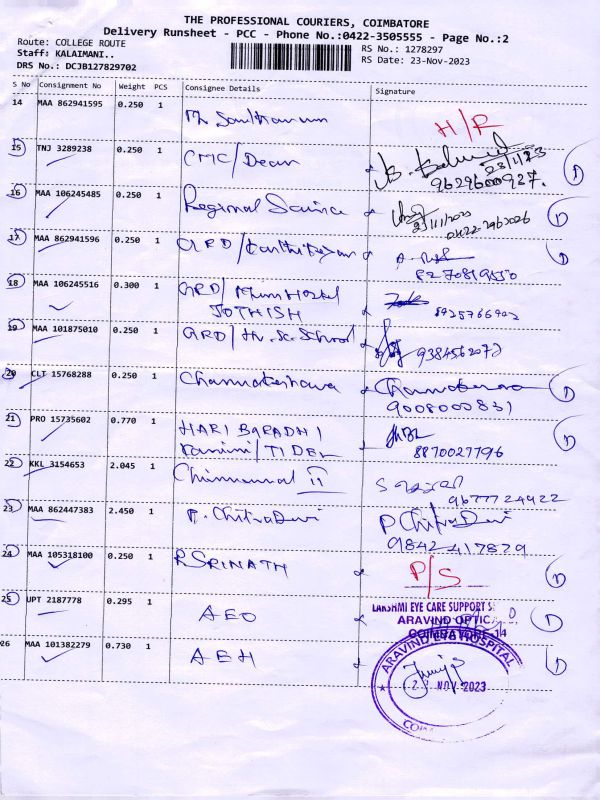 THE PROFESSIONAL COURIERS, COIMBATORE
Delivery Runsheet - PCC - Phone No.:0422-3505555 - Page No.:2
Route: COLLEGE ROUTE
RS No.: 1278297
Staff: KALAIMANI..
RS Date: 23-Nov-2023
DRS No.: DCJB127829702
S No Consignment No Weight PCS Consignee Details Signature
14 MAA 862941595 0.250 1
H/R
15 TNJ 3289238 0.250 1 CMC/Dean
23/11/23
9629600927.
16 MAA 106245485 0.250 1 Regional Science
0422-2963026
17 MAA 862941596 0.250 1 GRD/
8270819550
18 MAA 106245516 0.300 1 GRD/ Hostel
JOTHISH
8925766902
19 MAA 101875010 0.250 1 GRD/Hr. Sc. School 9384562072
20 CLT 15768288 0.250 1
9008000831
21 PRO 15735602 0.770 1 HARI BARADHI
/TIDEL 8870027796
22 KKL 3154653 2.045 1
9677724922
23 MAA 862447383 2.450 1 P. ChitraDevi P ChitraDevi
9842417829
24 MAA 105318100 0.250 1 R SRINATH P/S
25 UPT 2187778 0.295 1 AEO
LAKSHMI EYE CARE SUPPORT
ARAVIND OPTIC
COIMBATORE-14
26 MAA 101382279 0.730 1 AEH
ARAVIND EYE HOSPITAL
NOV 2023